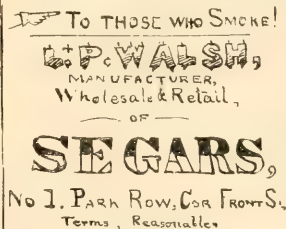 TO THOSE WHO SMOKE!
L. P. WALSH,
MANUFACTURER,
Wholesale & Retail,
OF
SEGARS,
No 1. PARK ROW, COR FRONT St,
Terms, Reasonable,